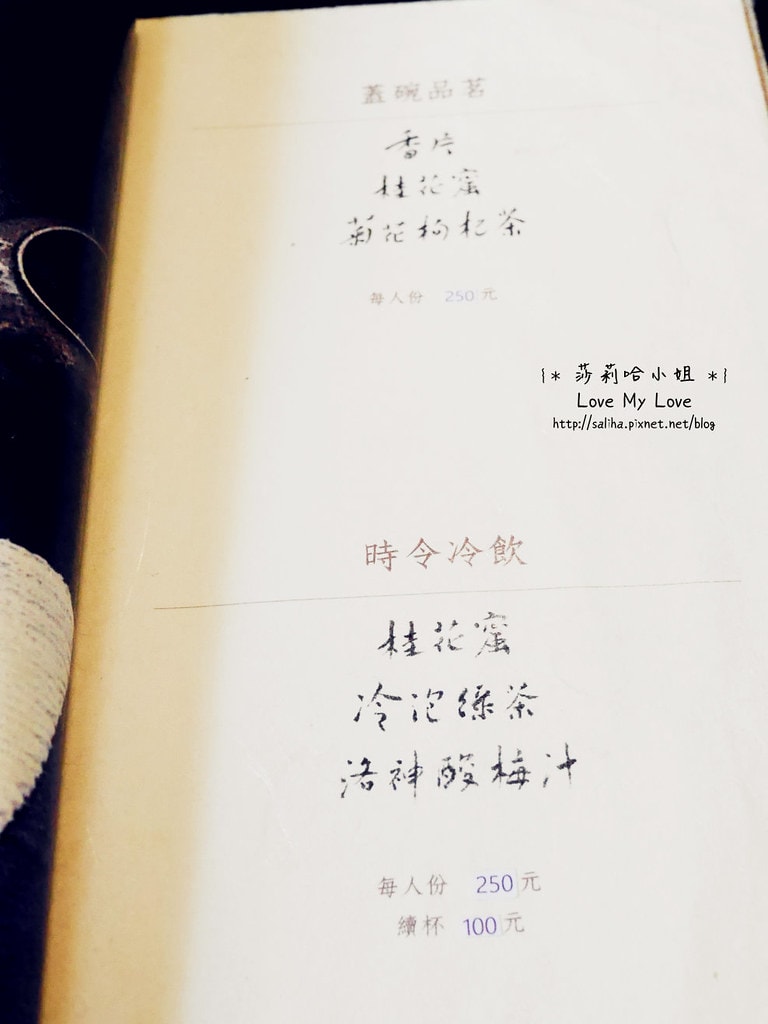 蓋碗品茗
香片
桂花蜜
菊花枸杞茶
每人份 250元
{* 莎莉哈小姐 *}
Love My Love
http://saliha.pixnet.net/blog
時令冷飲
桂花蜜
冷泡綠茶
洛神酸梅汁
每人份 250元
續杯 100元